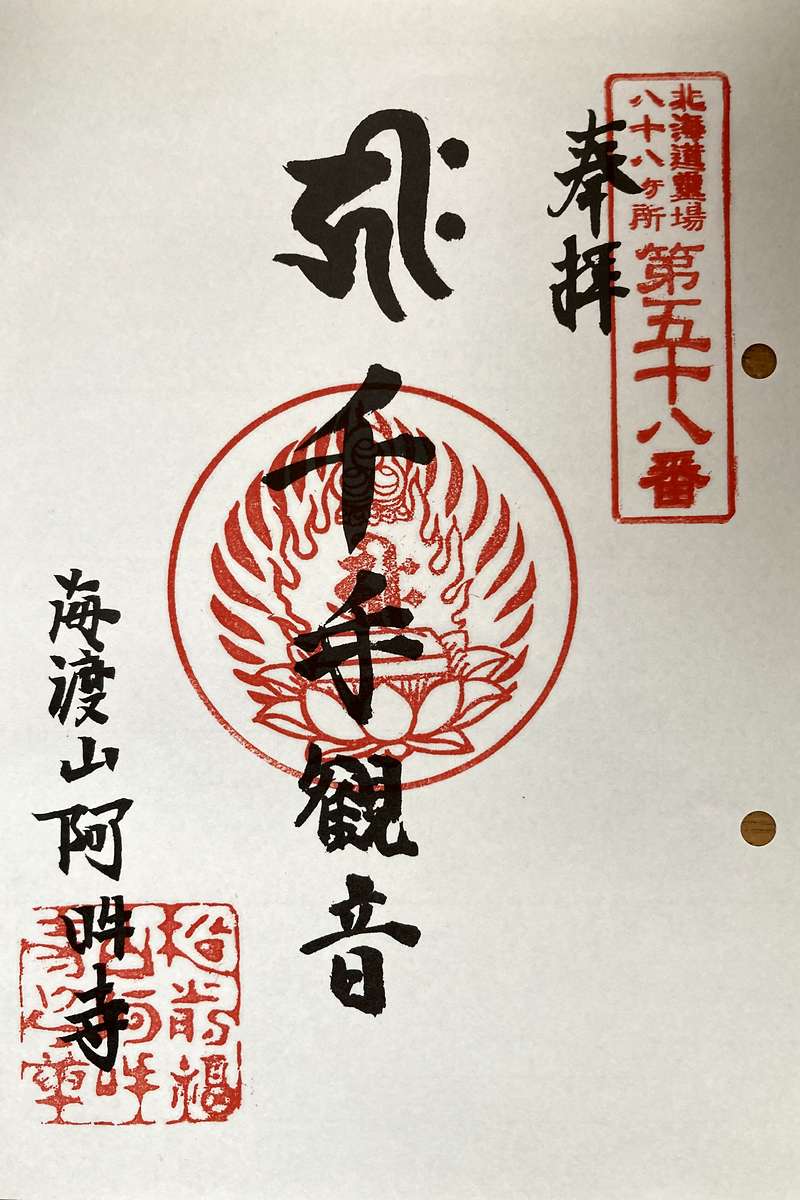 北海道霊場
八十八ヶ所
第五十八番
奉拝
千手観音
海渡山阿吽寺